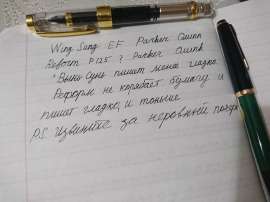 Wing Sung EF Parker Quink
Reform P125 ? Parker Quink
"Винг Сунг пишет менее гладко.
Реформ не корябает бумагу и
пишет гладко, и тоньше
P.S Извините за неровный почерк